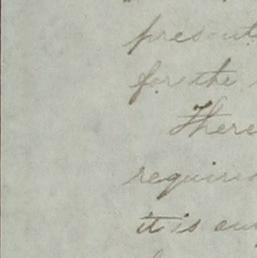 present
for the
There
required
it is our